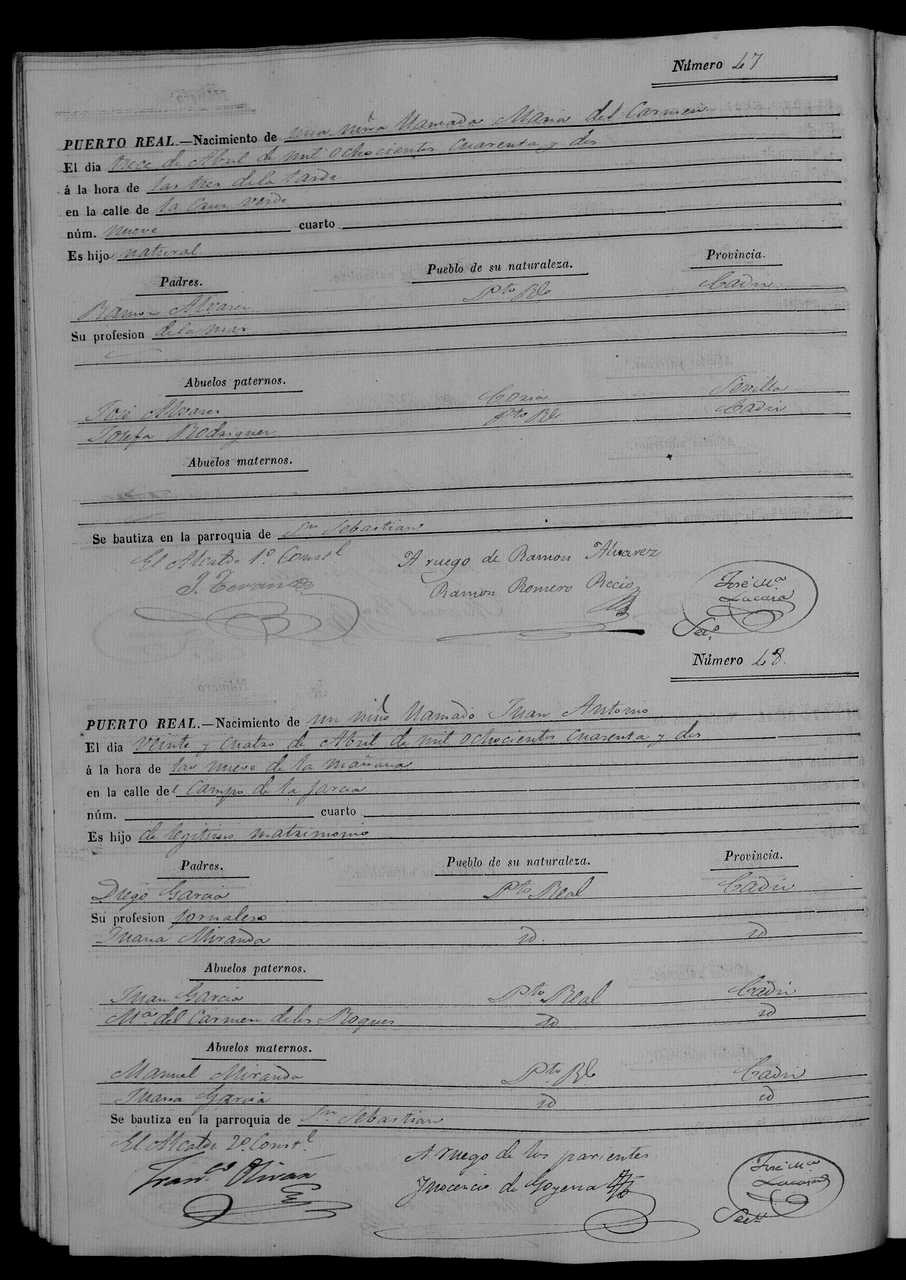 Número 47
PUERTO REAL.—Nacimiento de una niña llamada Maria del Carmen
El dia trece de Abril de mil ochocientos cuarenta y dos
á la hora de las tres de la tarde
en la calle de la Cruz verde
núm. nueve cuarto
Es hijo natural
Padres. Pueblo de su naturaleza. Provincia.
Ramon Alvarez Pto Rl Cadiz
Su profesion de la mar
Abuelos paternos.
José Alvarez Coria Sevilla
Josefa Rodriguez Pto Rl Cadiz
Abuelos maternos.
Se bautiza en la parroquia de Sn Sebastian
El Alcalde 1º Constl A ruego de Ramon Alvarez
Ramon Romero Recio José Mª
Sec.
Número 48.
PUERTO REAL.—Nacimiento de un niño llamado Juan Antonio
El dia veinte y cuatro de Abril de mil ochocientos cuarenta y dos
á la hora de las nueve de la mañana
en la calle del Campo de la
núm. cuarto
Es hijo de legitimo matrimonio
Padres. Pueblo de su naturaleza. Provincia.
Diego Garcia Pto Real Cadiz
Su profesion jornalero
Juana Miranda id. id
Abuelos paternos.
Juan Garcia Pto Real Cadiz
Mª del Carmen de los Roques id id
Abuelos maternos.
Manuel Miranda Pto Rl Cadiz
Juana Garcia id id
Se bautiza en la parroquia de Sn Sebastian
El Alcalde 2º Constl A ruego de los parientes José Mª
Franco Olivan Inocencio de Goyena